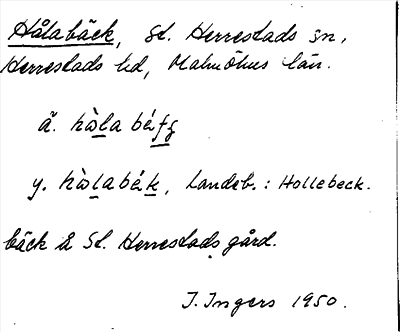 Hålabäck, St. Herrestads sn,
Herrestads hd, Malmöhus län.
ä. hàla bé
y. hàlabék, Landeb.: Hollebeck.
bäck å St. Herrestads gård.
I. Ingers 1950.